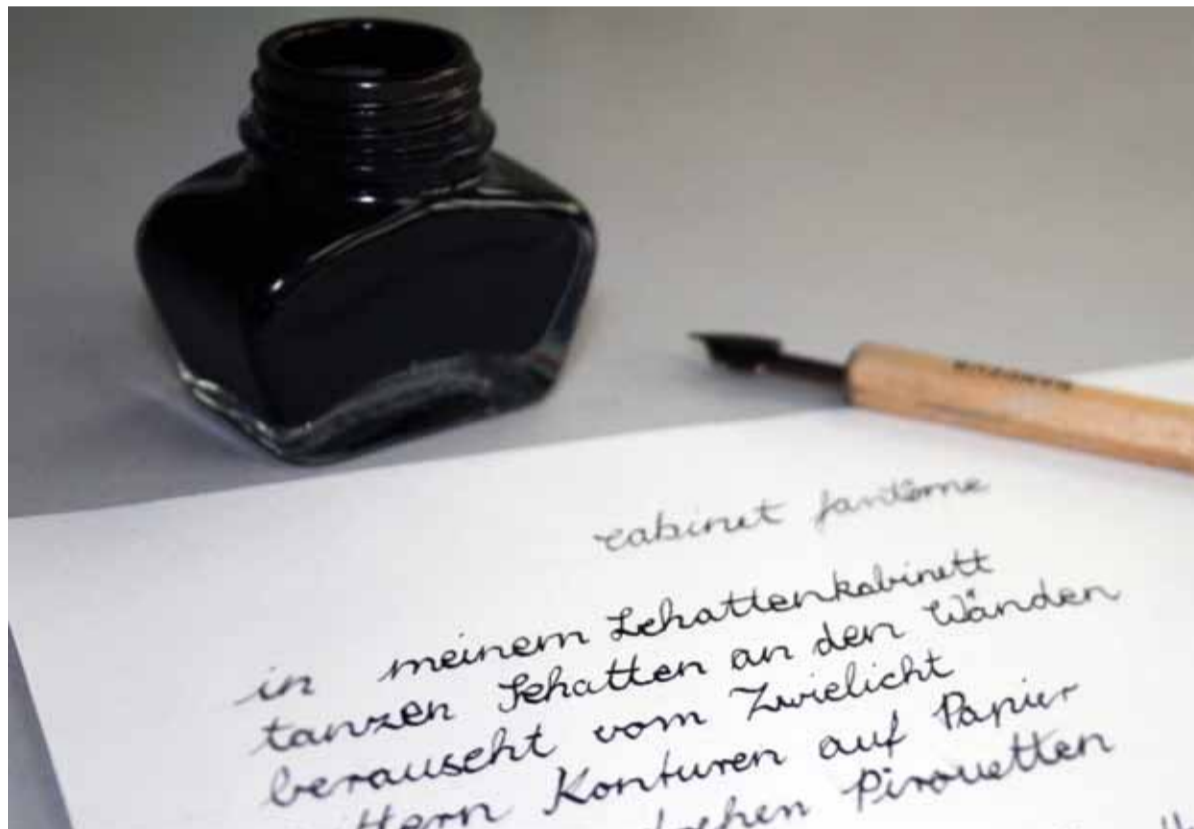 cabinet fantôme
in meinem Schattenkabinett
tanzen Schatten an den Wänden
berauscht vom Zwielicht
Konturen auf Papier
drehen Pirouetten